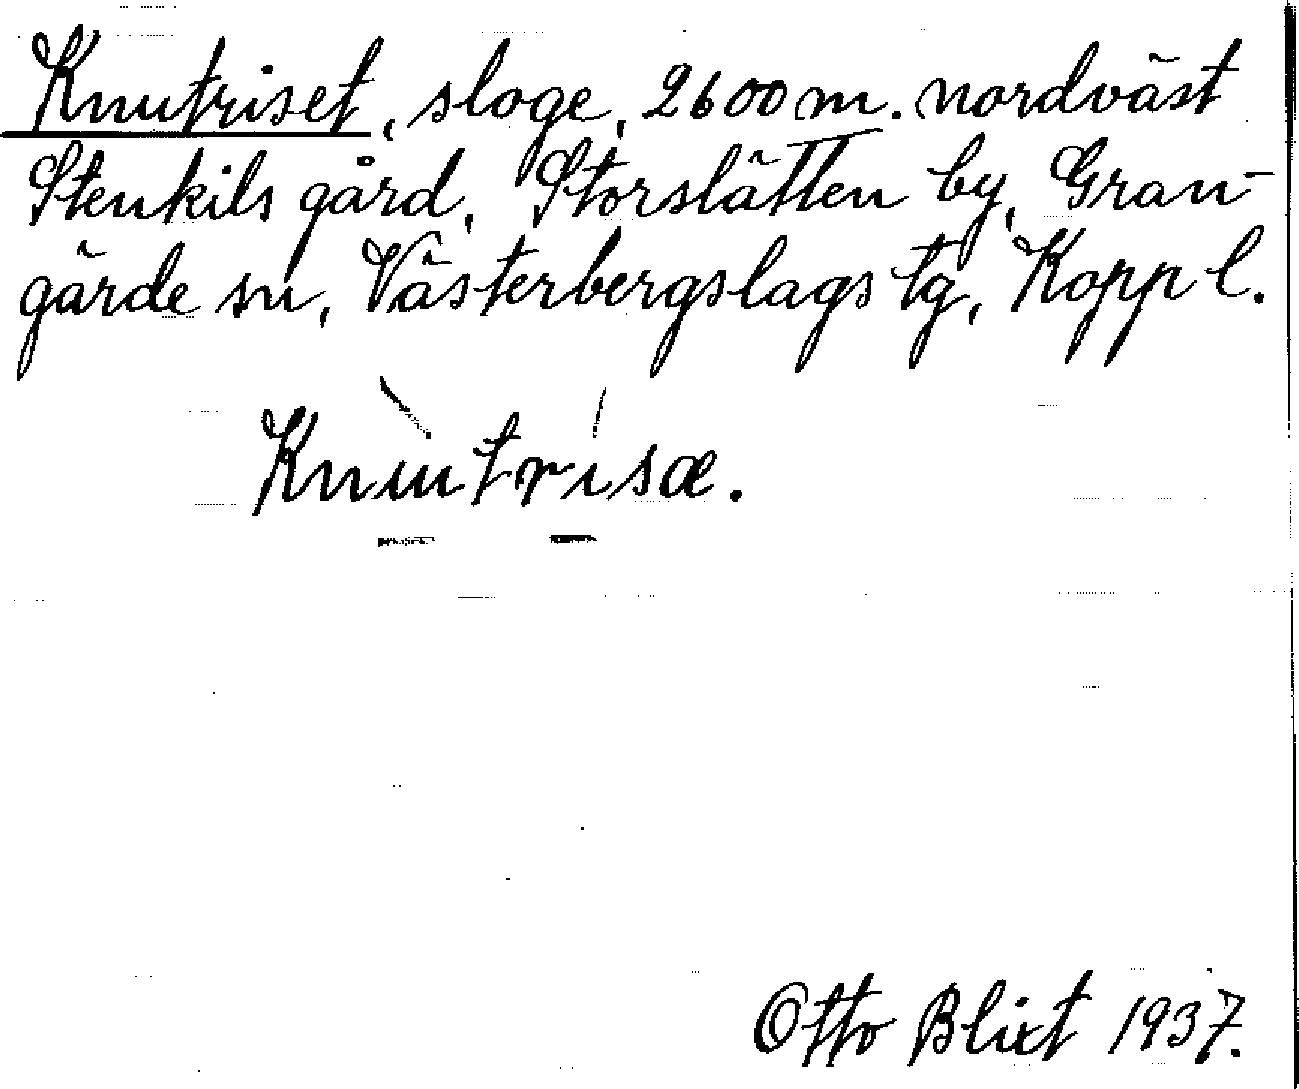 Knutriset, sloge, 2600 m. nordväst
Stenkils gård, Storslätten by, Gran-
gärde sn, Västerbergslags tg, Kopp l.
Knùtrísæ.
Otto Blixt 1937.